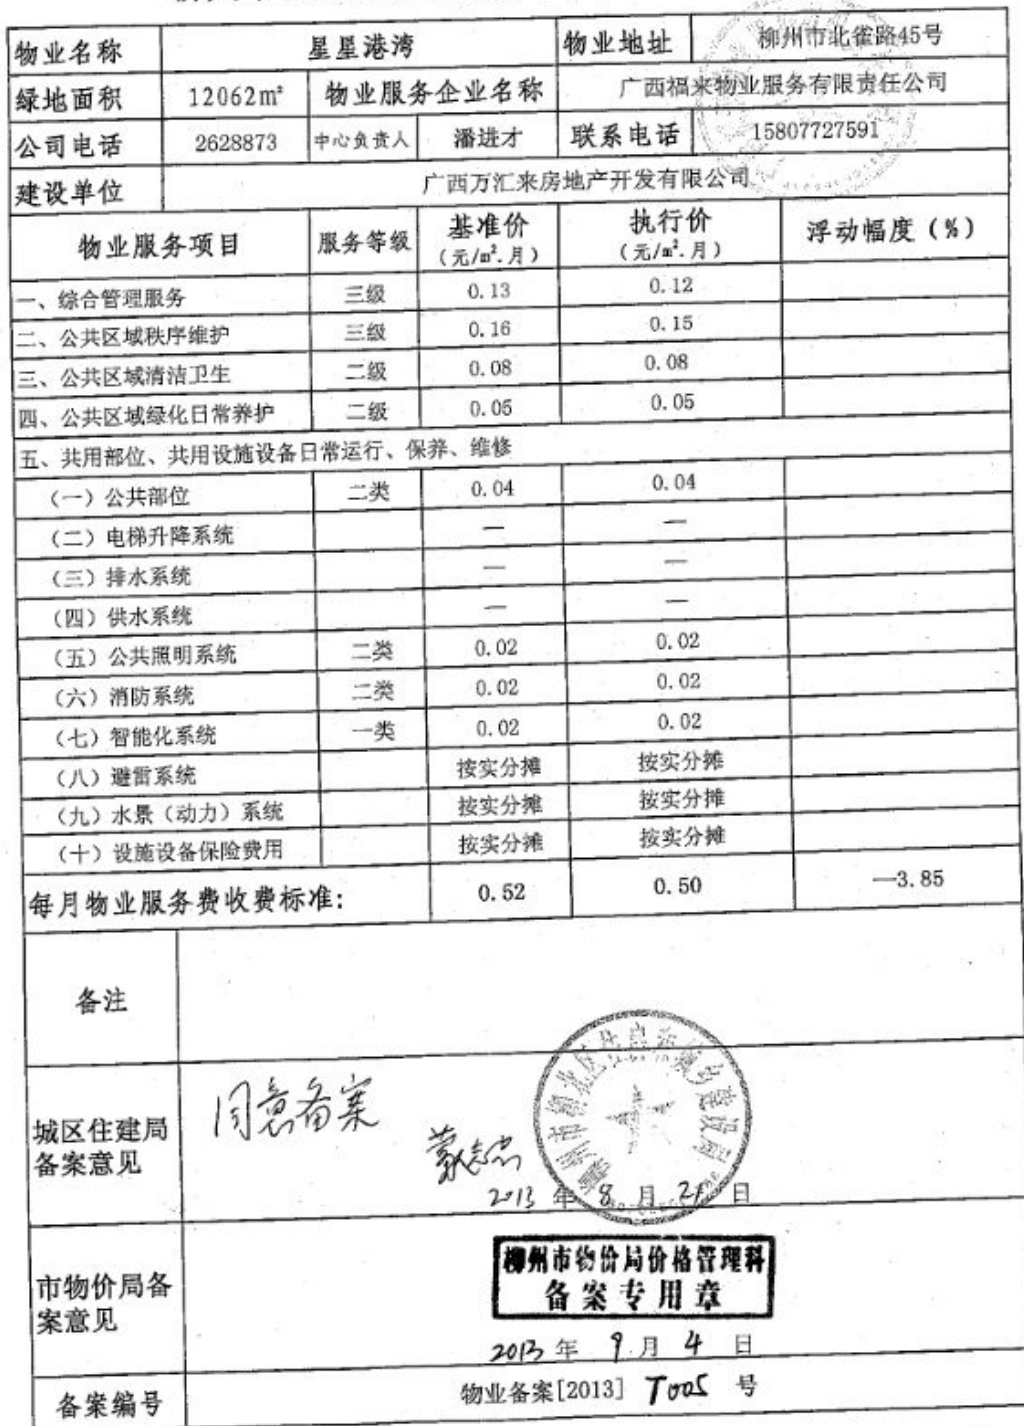 物业名称 星星港湾 物业地址 柳州市北雀路45号
绿地面积 12062m² 物业服务企业名称 广西福来物业服务有限责任公司
公司电话 2628873 中心负责人 潘进才 联系电话 15807727591
建设单位 广西万汇来房地产开发有限公司
物业服务项目 服务等级 基准价 执行价 浮动幅度（%）
（元/m².月） （元/m².月）
一、综合管理服务 三级 0.13 0.12
二、公共区域秩序维护 三级 0.16 0.15
三、公共区域清洁卫生 二级 0.08 0.08
四、公共区域绿化日常养护 二级 0.05 0.05
五、共用部位、共用设施设备日常运行、保养、维修
（一）公共部位 二类 0.04 0.04
（二）电梯升降系统 — —
（三）排水系统 — —
（四）供水系统 — —
（五）公共照明系统 二类 0.02 0.02
（六）消防系统 二类 0.02 0.02
（七）智能化系统 一类 0.02 0.02
（八）避雷系统 按实分摊 按实分摊
（九）水景（动力）系统 按实分摊 按实分摊
（十）设施设备保险费用 按实分摊 按实分摊
每月物业服务费收费标准: 0.52 0.50 —3.85
备注
城区住建局
备案意见
同意备案
柳州市柳北区住房和城乡建设局
2013 年 8 月 21 日
市物价局备
案意见
柳州市物价局价格管理科
备案专用章
2013 年 9 月 4 日
备案编号 物业备案[2013] T005 号